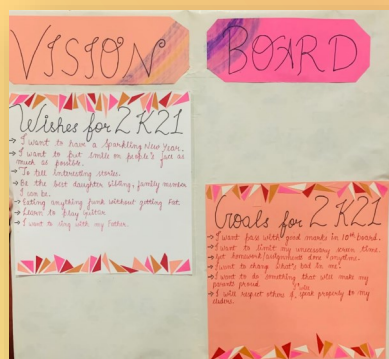 VISION
BOARD
Wishes for 2K21
→ I want to have a sparkling New Year.
→ I want to put smile on people's face as
much as possible.
→ To tell interesting stories.
→ Be the best daughter, sibling, family member
I can be.
→ Eating anything junk without getting fat.
→ Learn to play guitar.
→ I want to sing with my Father.
Goals for 2K21
→ I want pass with good marks in 10th board.
→ I want to limit my unnecessary screen time.
→ Get homework/assignments done anytime.
→ I want to change what's bad in me.
→ I want to do something that will make my
parents proud.
→ I will respect others & speak properly to my
elders.